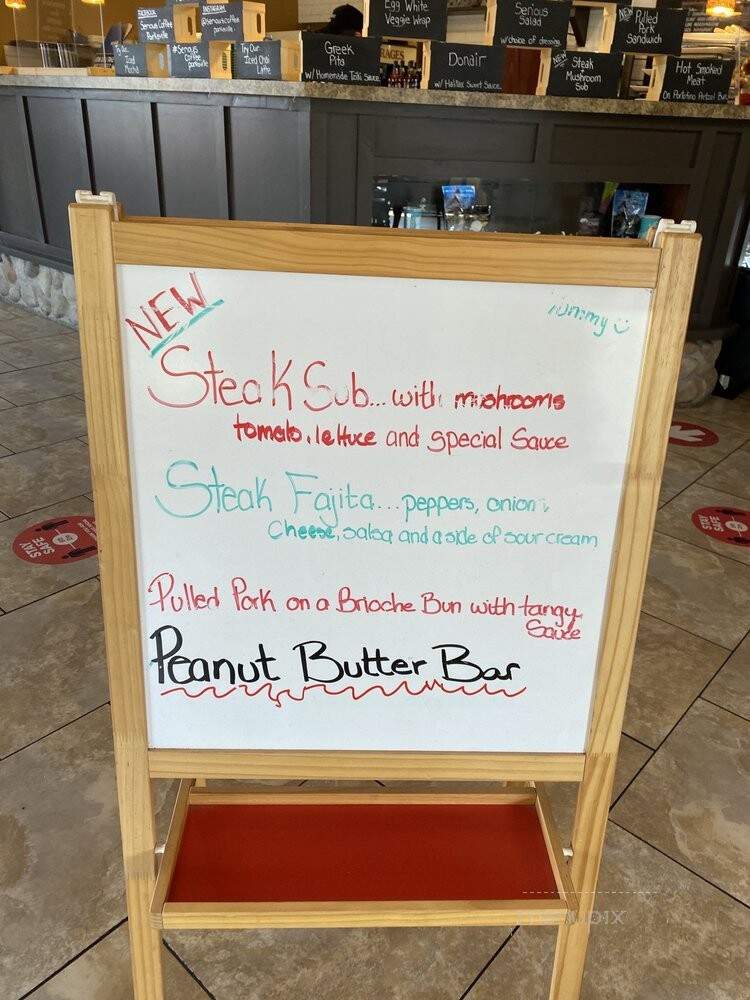 Serious Coffee
Parksville
INSTAGRAM
@Seriouscoffee
parksville
Egg White
Veggie Wrap
Serious
Salad
w/choice of dressing
NEW
Pulled
Pork
Sandwich
Try Our
Iced
Mocha
#Serious
Coffee
parksville
Try Our
Iced Chai
Latte
Greek
Pita
w/ Homemade Tziki Sauce
Donair
w/ Halifax Sweet Sauce
NEW
Steak
Mushroom
Sub
Hot Smoked
Meat
On Portofino Pretzel Bun
NEW
Yummy
Steak Sub... with mushrooms
tomato, lettuce and special Sauce
Steak Fajita... peppers, onion,
Cheese, salsa and a side of sour cream
Pulled Pork on a Brioche Bun with tangy
Sauce
Peanut Butter Bar
STAY
SAFE
STAY
SAFE